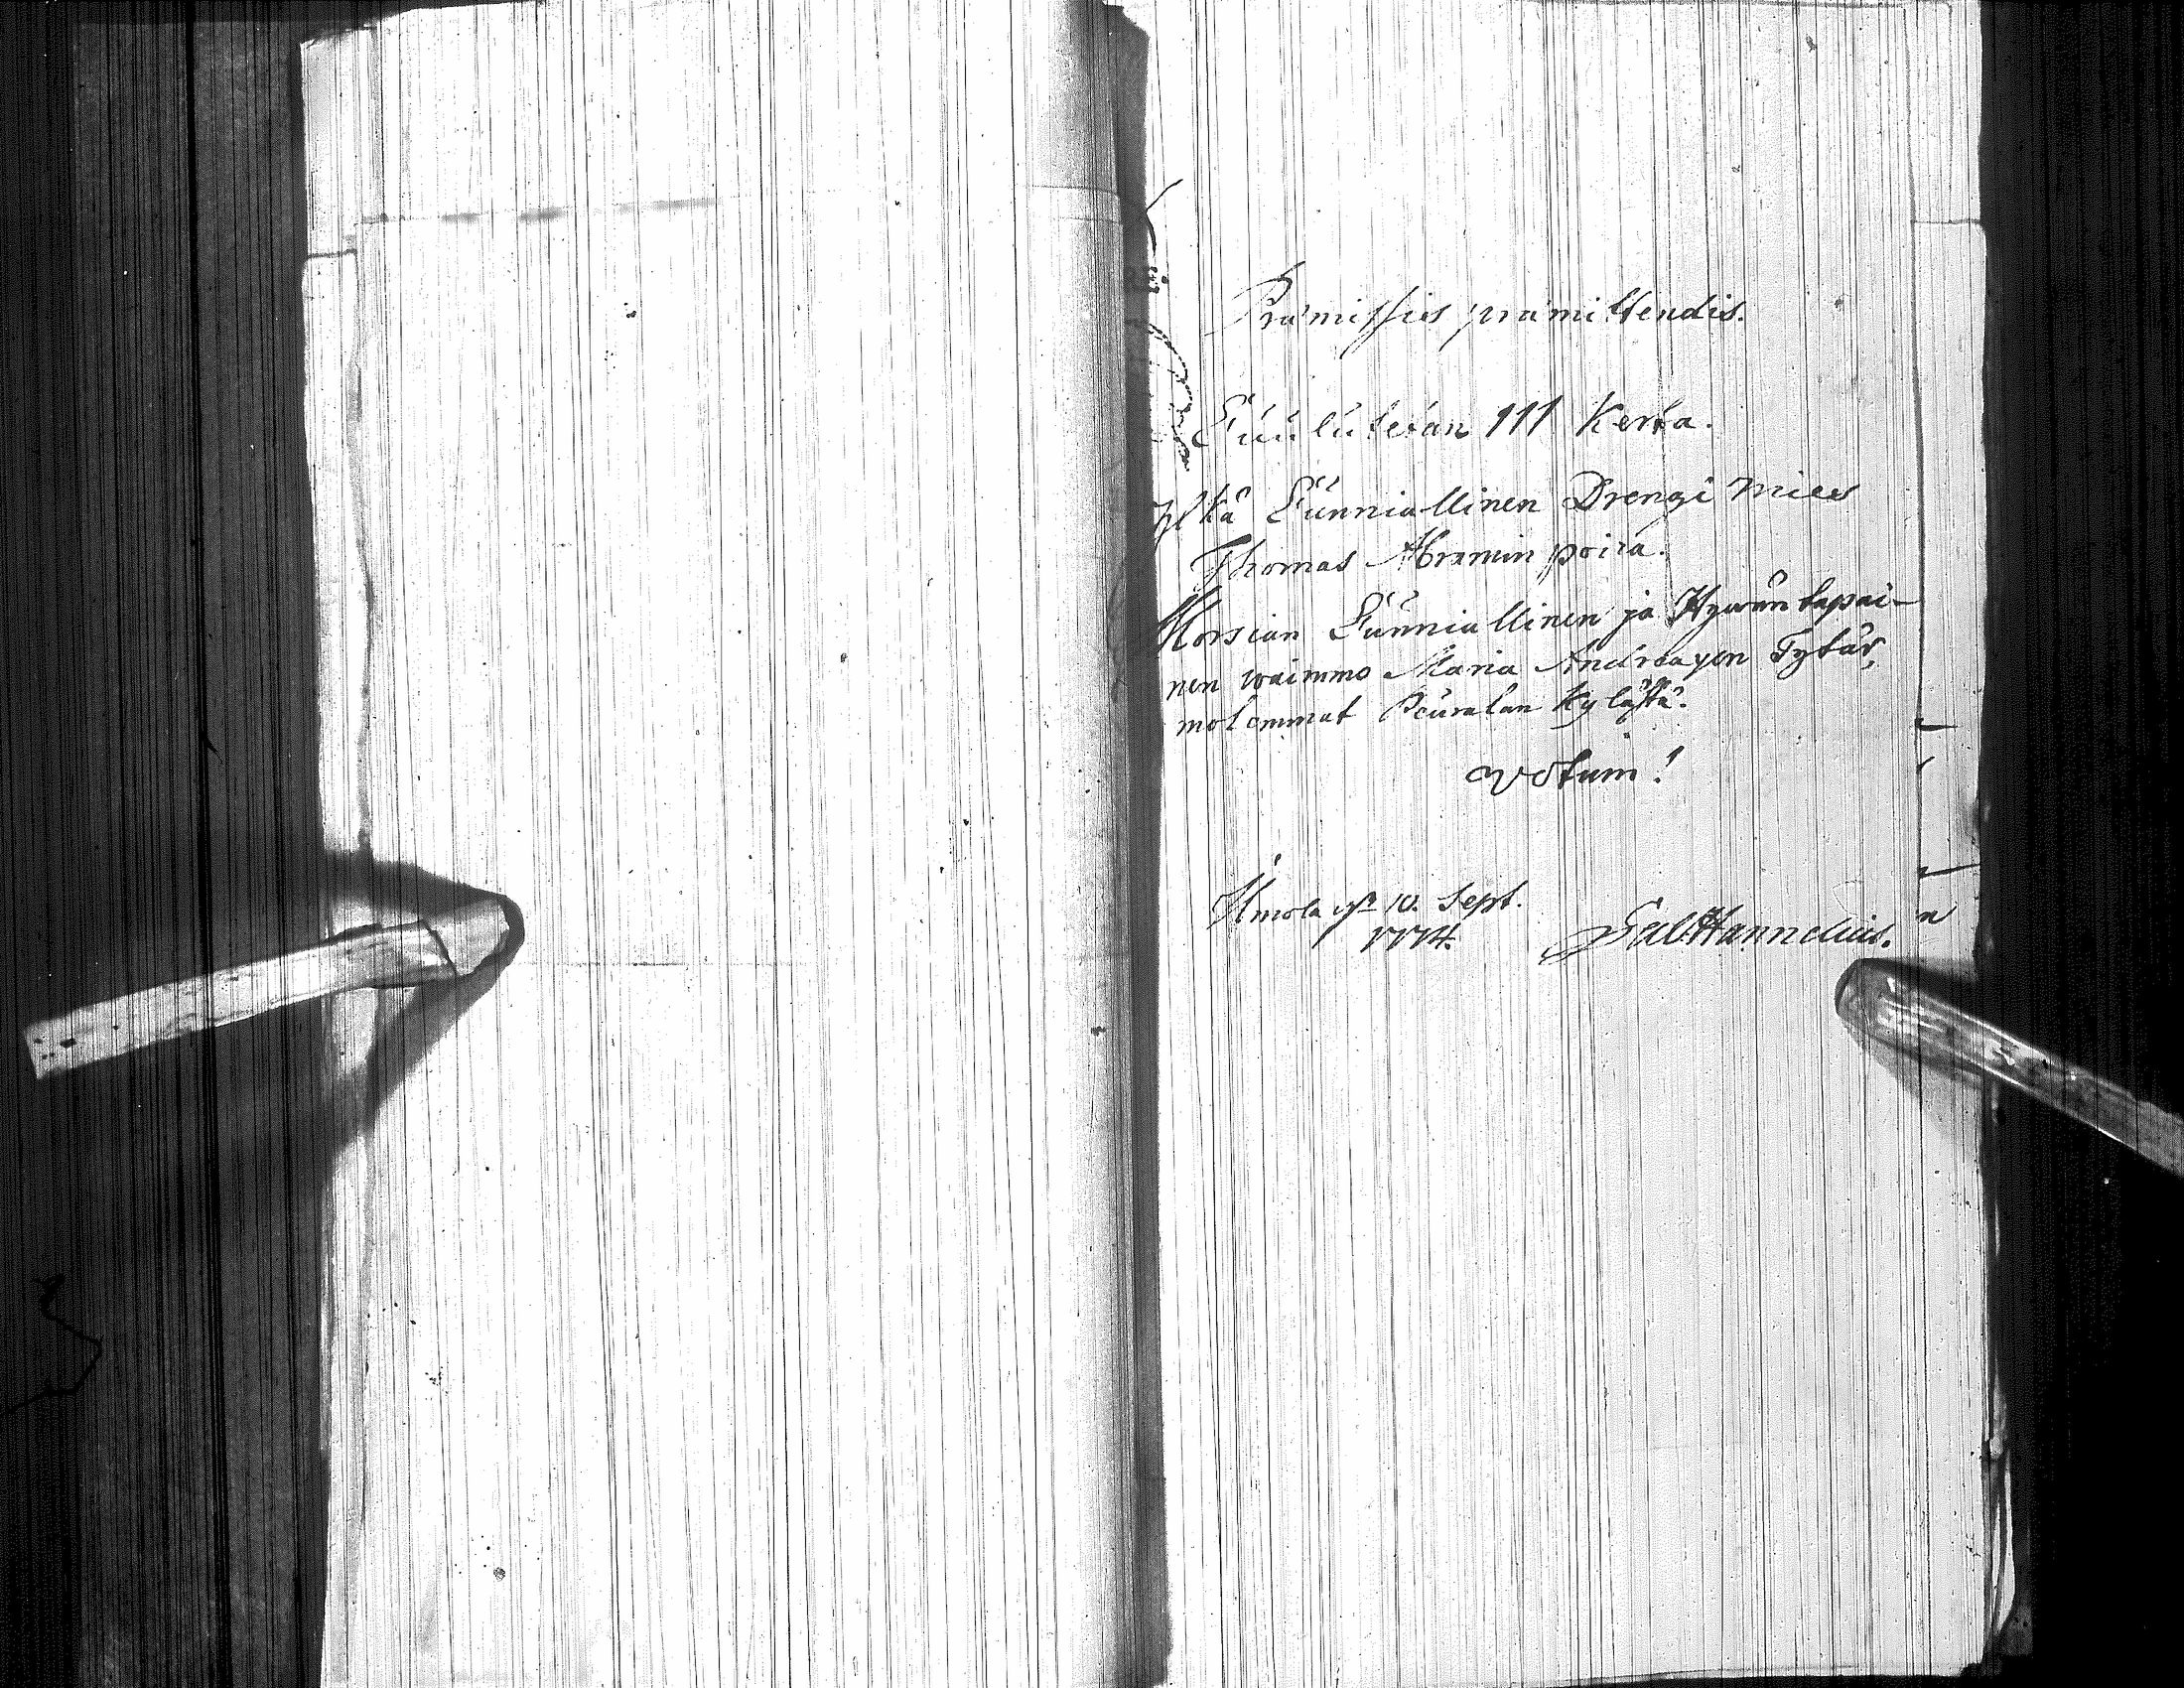 Præmissis præmittendis.
Cuulutetan 111 Kerta.
Ylkä Cunniallinen Drengi mies
Thomas Abramin poica.
Morsian Cunniallinen ja Hywän tapai-
nen waimmo Maria Andreaxen Tytär,
molemmat Peuralan Kylästä.
votum!
Ilmola d. 10. Sept.
1774.
Gab. Hannelius.